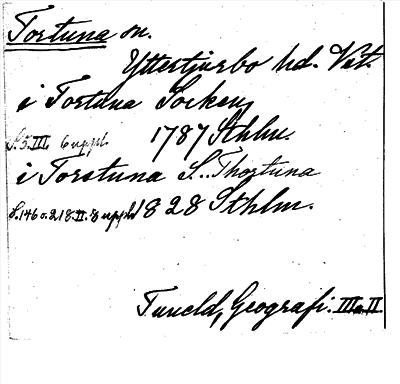 Tortuna sn.
Yttertjurbo hd. Vstm.
i Tortuna Socken,
S. 5. III. 6 uppl. 1787 Sthlm.
i Torstuna S.. Thortuna
S. 146 o. 218. II. 8 uppl. 1828 Sthlm.
Tuneld, Geografi. III o. II.